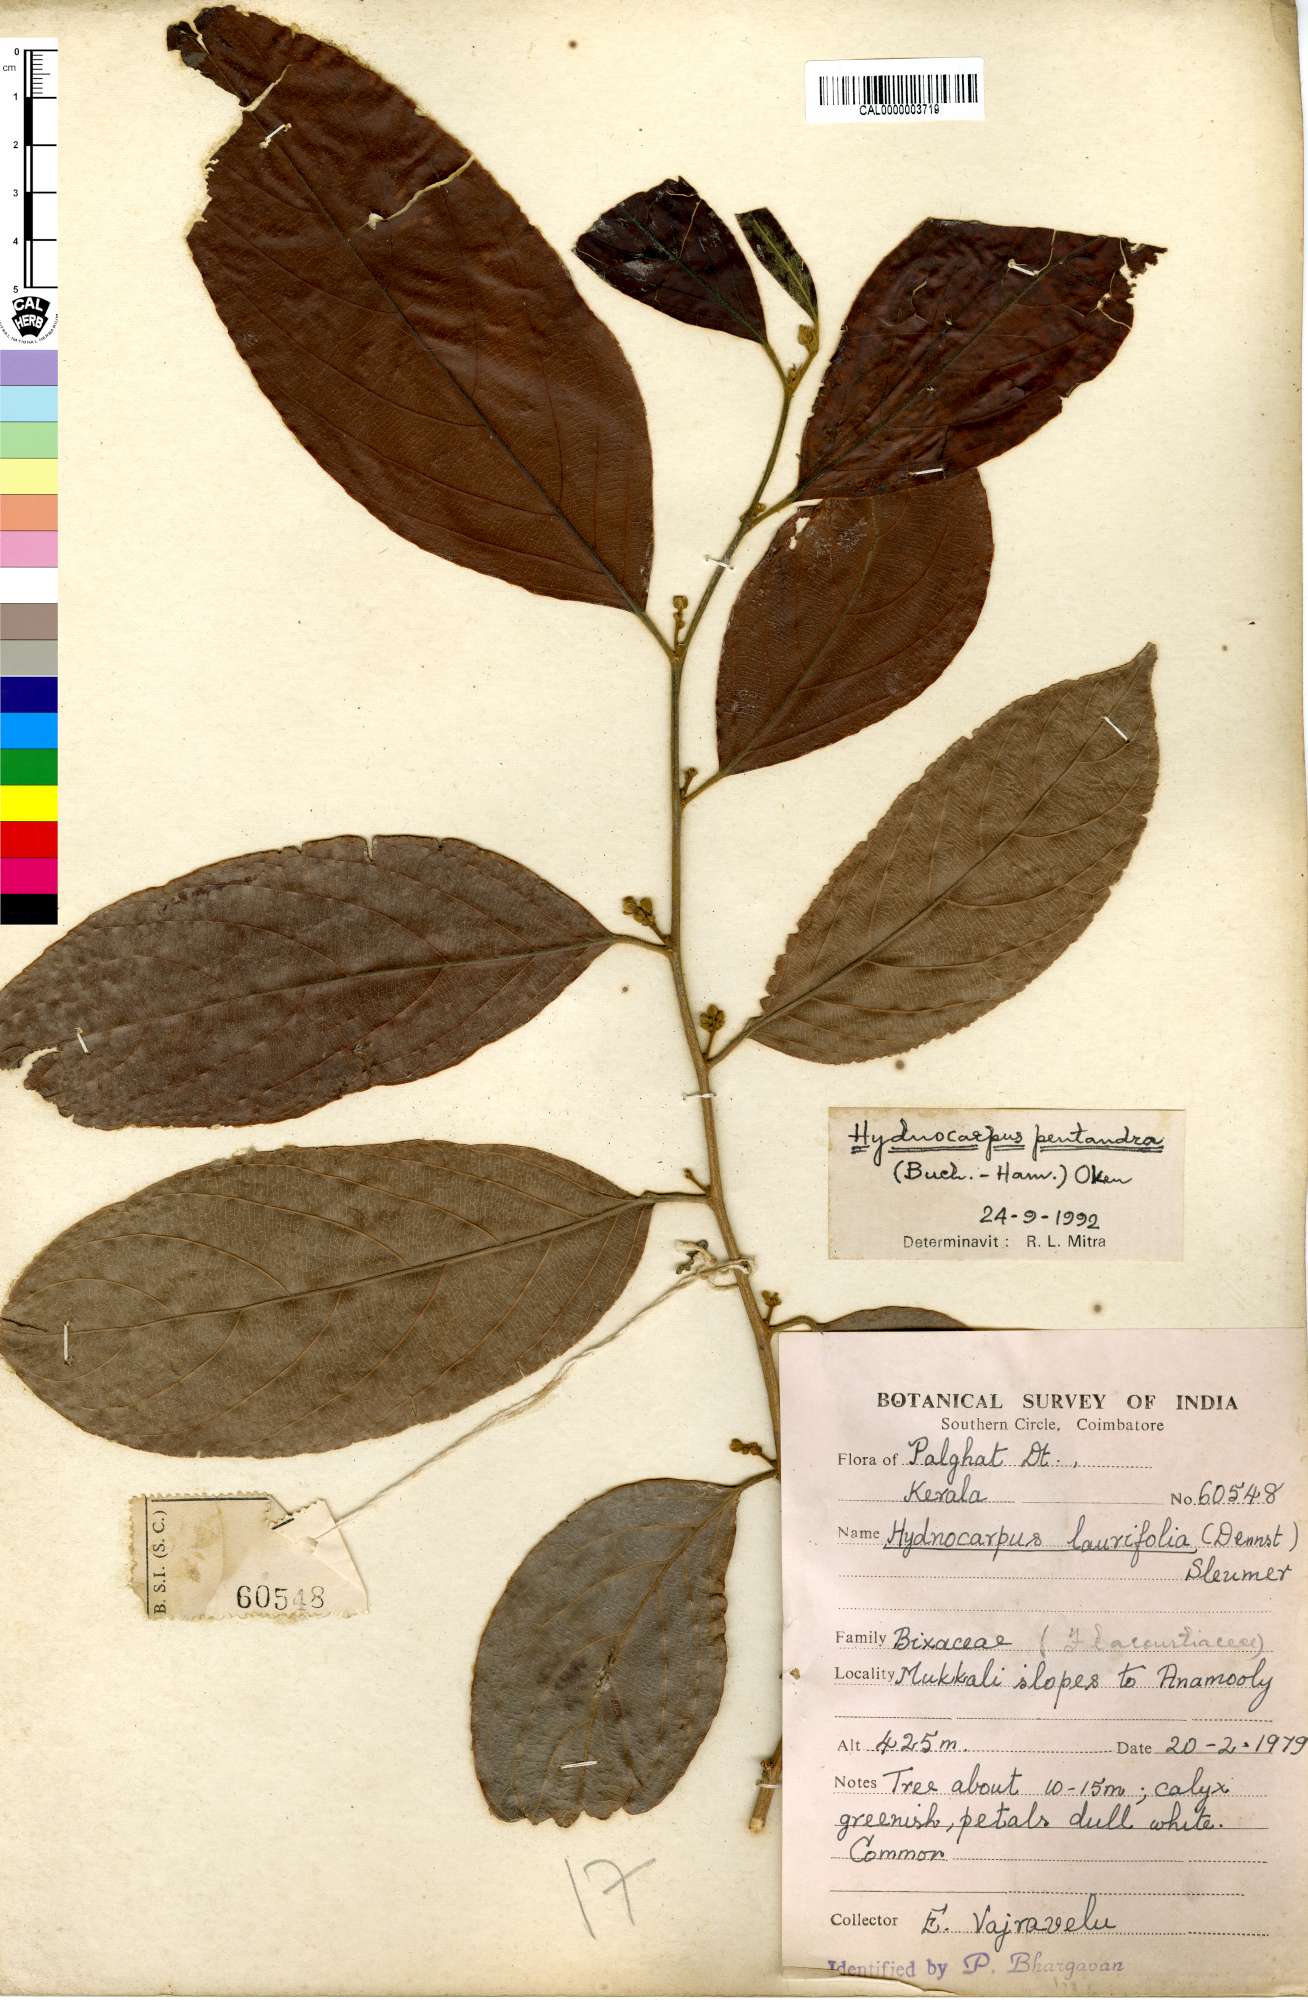 CAL0000003719
0
cm
1
2
3
4
5
CAL
HERB
Hydnocarpus pentandra
(Buch.-Ham.) Oken
24-9-1992
Determinavit: R. L. Mitra
BOTANICAL SURVEY OF INDIA
Southern Circle, Coimbatore
Flora of Palghat Dt.,
Kerala No. 60548
Name Hydnocarpus laurifolia (Dennst)
Sleumer
Family Bixaceae (Flacourtiaceae)
Locality Mukkali slopes to Anamooly
Alt 425m. Date 20-2-1979
Notes Tree about 10-15m; calyx
greenish, petals dull white.
Common
Collector E. Vajravelu
Identified by P. Bhargavan
B. S.I. (S. C.)
60548
17